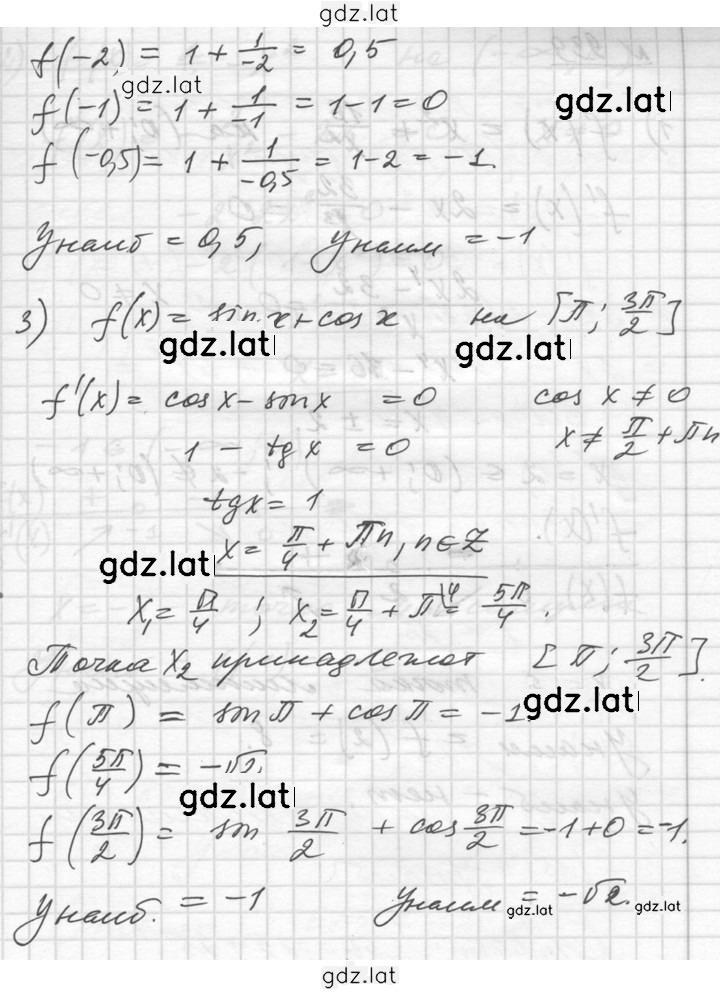 gdz.lat
f(-2) = 1 + 1/-2 = 0,5
gdz.lat
f(-1) = 1 + 1/-1 = 1-1=0
gdz.lat
f(-0,5)= 1 + 1/-0,5 = 1-2 = -1.
Унаиб = 0,5, Унаим = -1
3) f(x)= sin x+cos x на [π; 3π/2]
gdz.lat gdz.lat
f'(x)= cos x - sin x = 0 cos x ≠ 0
1 - tg x = 0 x ≠ π/2 + πn
tgx = 1
x = π/4 + πn, n∈Z
gdz.lat
x₁= π/4 ; x₂= π/4 + π\4 = 5π/4.
Точка x₂ принадлежит [π; 3π/2].
gdz.lat
f(π) = sin π + cos π = -1.
f(5π/4) = -√2.
gdz.lat
f(3π/2) = sin 3π/2 + cos 3π/2 = -1+0=-1.
Унаиб. = -1 Унаим = -√2.
gdz.lat gdz.lat
gdz.lat